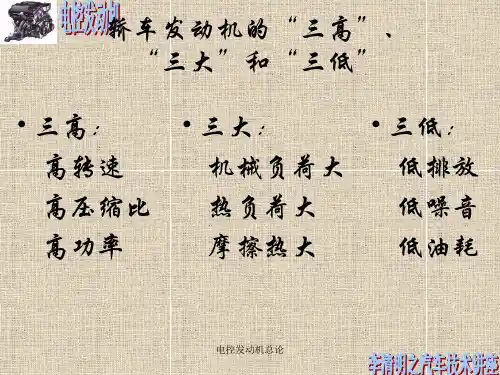 电控发动机
轿车发动机的“三高”、
“三大”和“三低”
•三高：
高转速
高压缩比
高功率
•三大：
机械负荷大
热负荷大
摩擦热大
•三低：
低排放
低噪音
低油耗
电控发动机总论
李清明之汽车技术讲座